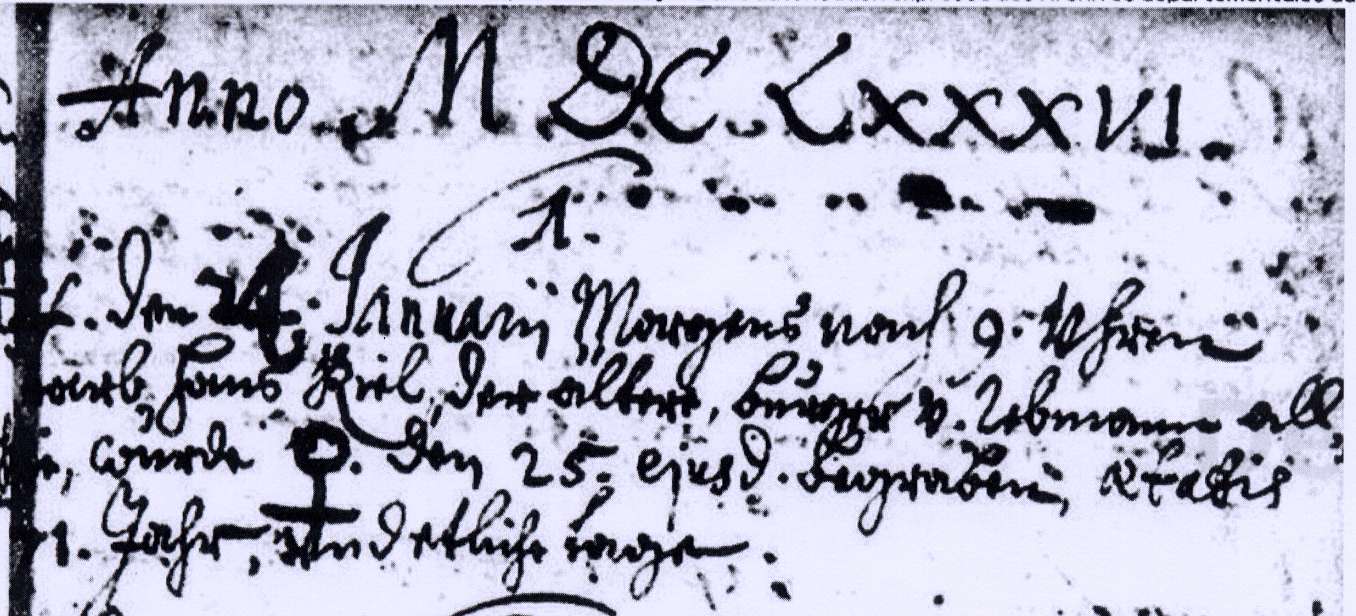 Anno MDCLXXXVI.
1.
den 24. Januarii Morgens nach 9. Uhren
starb, Hans Kiel, der altere, burger v. Rebmann all,
hie, wurde ♀. den 25. ejusd. begraben, ætatis
71. Jahr, und etliche tage.